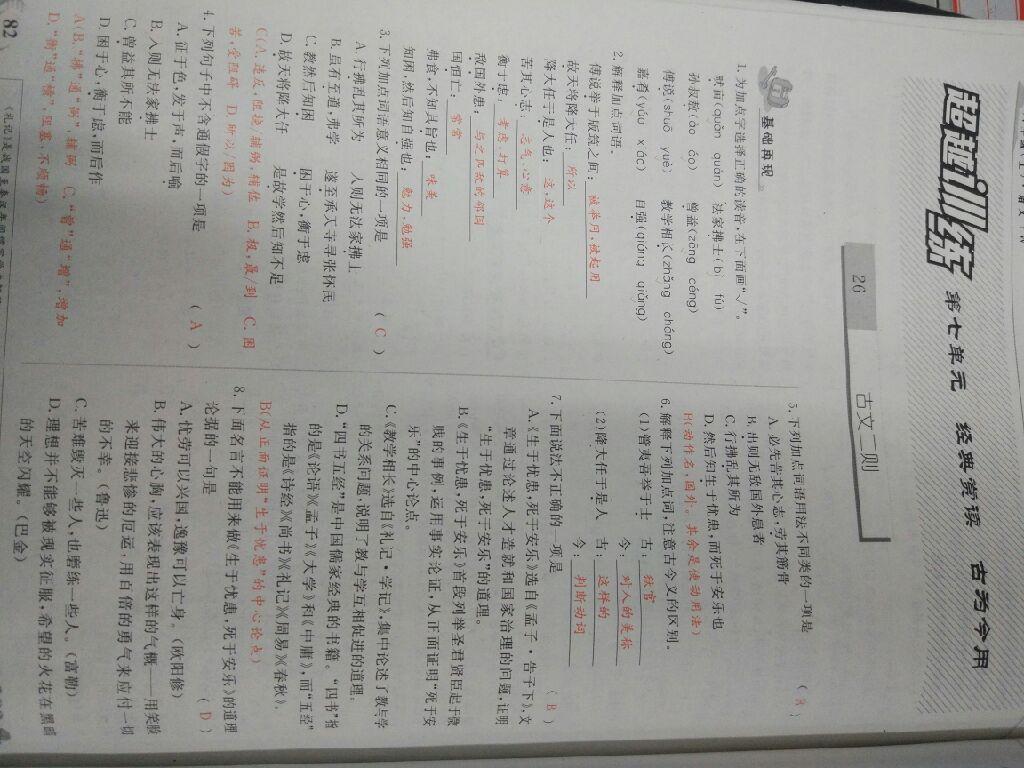 超越训练
第七单元 经典赏读 古为今用
26 古文二则
基础再现
1. 为加点字选择正确的读音,在下面画“√”。
畎亩(quǎn quán) 法家拂士(bì fú)
孙叔敖(áo ǎo) 曾益(zēng céng)
傅说(shuō yuè) 教学相长(zhǎng cháng)
嘉肴(yáo xiáo) 自强(qiáng qiǎng)
2. 解释加点词语。
傅说举于版筑之间:被举用,被起用
故天将降大任:所以
降大任于是人也:这,这个
苦其心志:志气,心意
衡于虑:考虑,打算
敌国外患:与之匹敌的邻国
国恒亡:常常
弗食,不知其旨也:味美
知困,然后知自强也:勉力、勉强
3. 下列加点词语意义相同的一项是 (C)
A. 行拂乱其所为 入则无法家拂士
B. 虽有至道,弗学 遂至承天寺寻张怀民
C. 教然后知困 困于心,衡于虑
D. 故天将降大任 是故学然后知不足
C(A. 违反,阻挠/辅弼,辅佐 B. 极,最/到 C. 困
苦,受阻碍 D. 所以/因为)
4. 下列句子中不含通假字的一项是 (A)
A. 征于色,发于声,而后喻
B. 入则无法家拂士
C. 曾益其所不能
D. 困于心,衡于虑,而后作
A(B.“拂”通“弼”,辅弼 C.“曾”通“增”,增加
D.“衡”通“横”,阻塞、不顺畅)
82
5. 下列加点词语用法不同类的一项是 (B)
A. 必先苦其心志,劳其筋骨
B. 出则无敌国外患者
C. 行拂乱其所为
D. 然后知生于忧患,而死于安乐也
B(动作名,国外。其余是使动用法)
6. 解释下列加点词,注意古今义的区别。
(1)管夷吾举于士 古:狱官
今:对人的美称
(2)降大任于是人 古:这样的
今:判断动词
7. 下面说法不正确的一项是 (B)
A.《生于忧患,死于安乐》选自《孟子·告子下》,文
章通过论述人才造就和国家治理的问题,证明
“生于忧患,死于安乐”的道理。
B.《生于忧患,死于安乐》首段列举圣君贤臣起于微
贱的事例,运用事实论证,从正面证明“死于安
乐”的中心论点。
C.《教学相长》选自《礼记·学记》,集中论述了教与学
的关系问题,说明了教与学互相促进的道理。
D.“四书五经”是中国儒家经典的书籍。“四书”指
的是《论语》《孟子》《大学》和《中庸》,而“五经”
指的是《诗经》《尚书》《礼记》《周易》《春秋》。
B(从正面证明“生于忧患”的中心论点)
8. 下面名言不能用来做《生于忧患,死于安乐》的道理
论据的一句是 (D)
A. 忧劳可以兴国,逸豫可以亡身。(欧阳修)
B. 伟大的心胸,应该表现出这样的气概——用笑脸
来迎接悲惨的厄运,用百倍的勇气来应付一切
的不幸。(鲁迅)
C. 苦难毁灭一些人,也磨练一些人。(富勒)
D. 理想并不能够被现实征服,希望的火花在黑暗
的天空闪耀。(巴金)